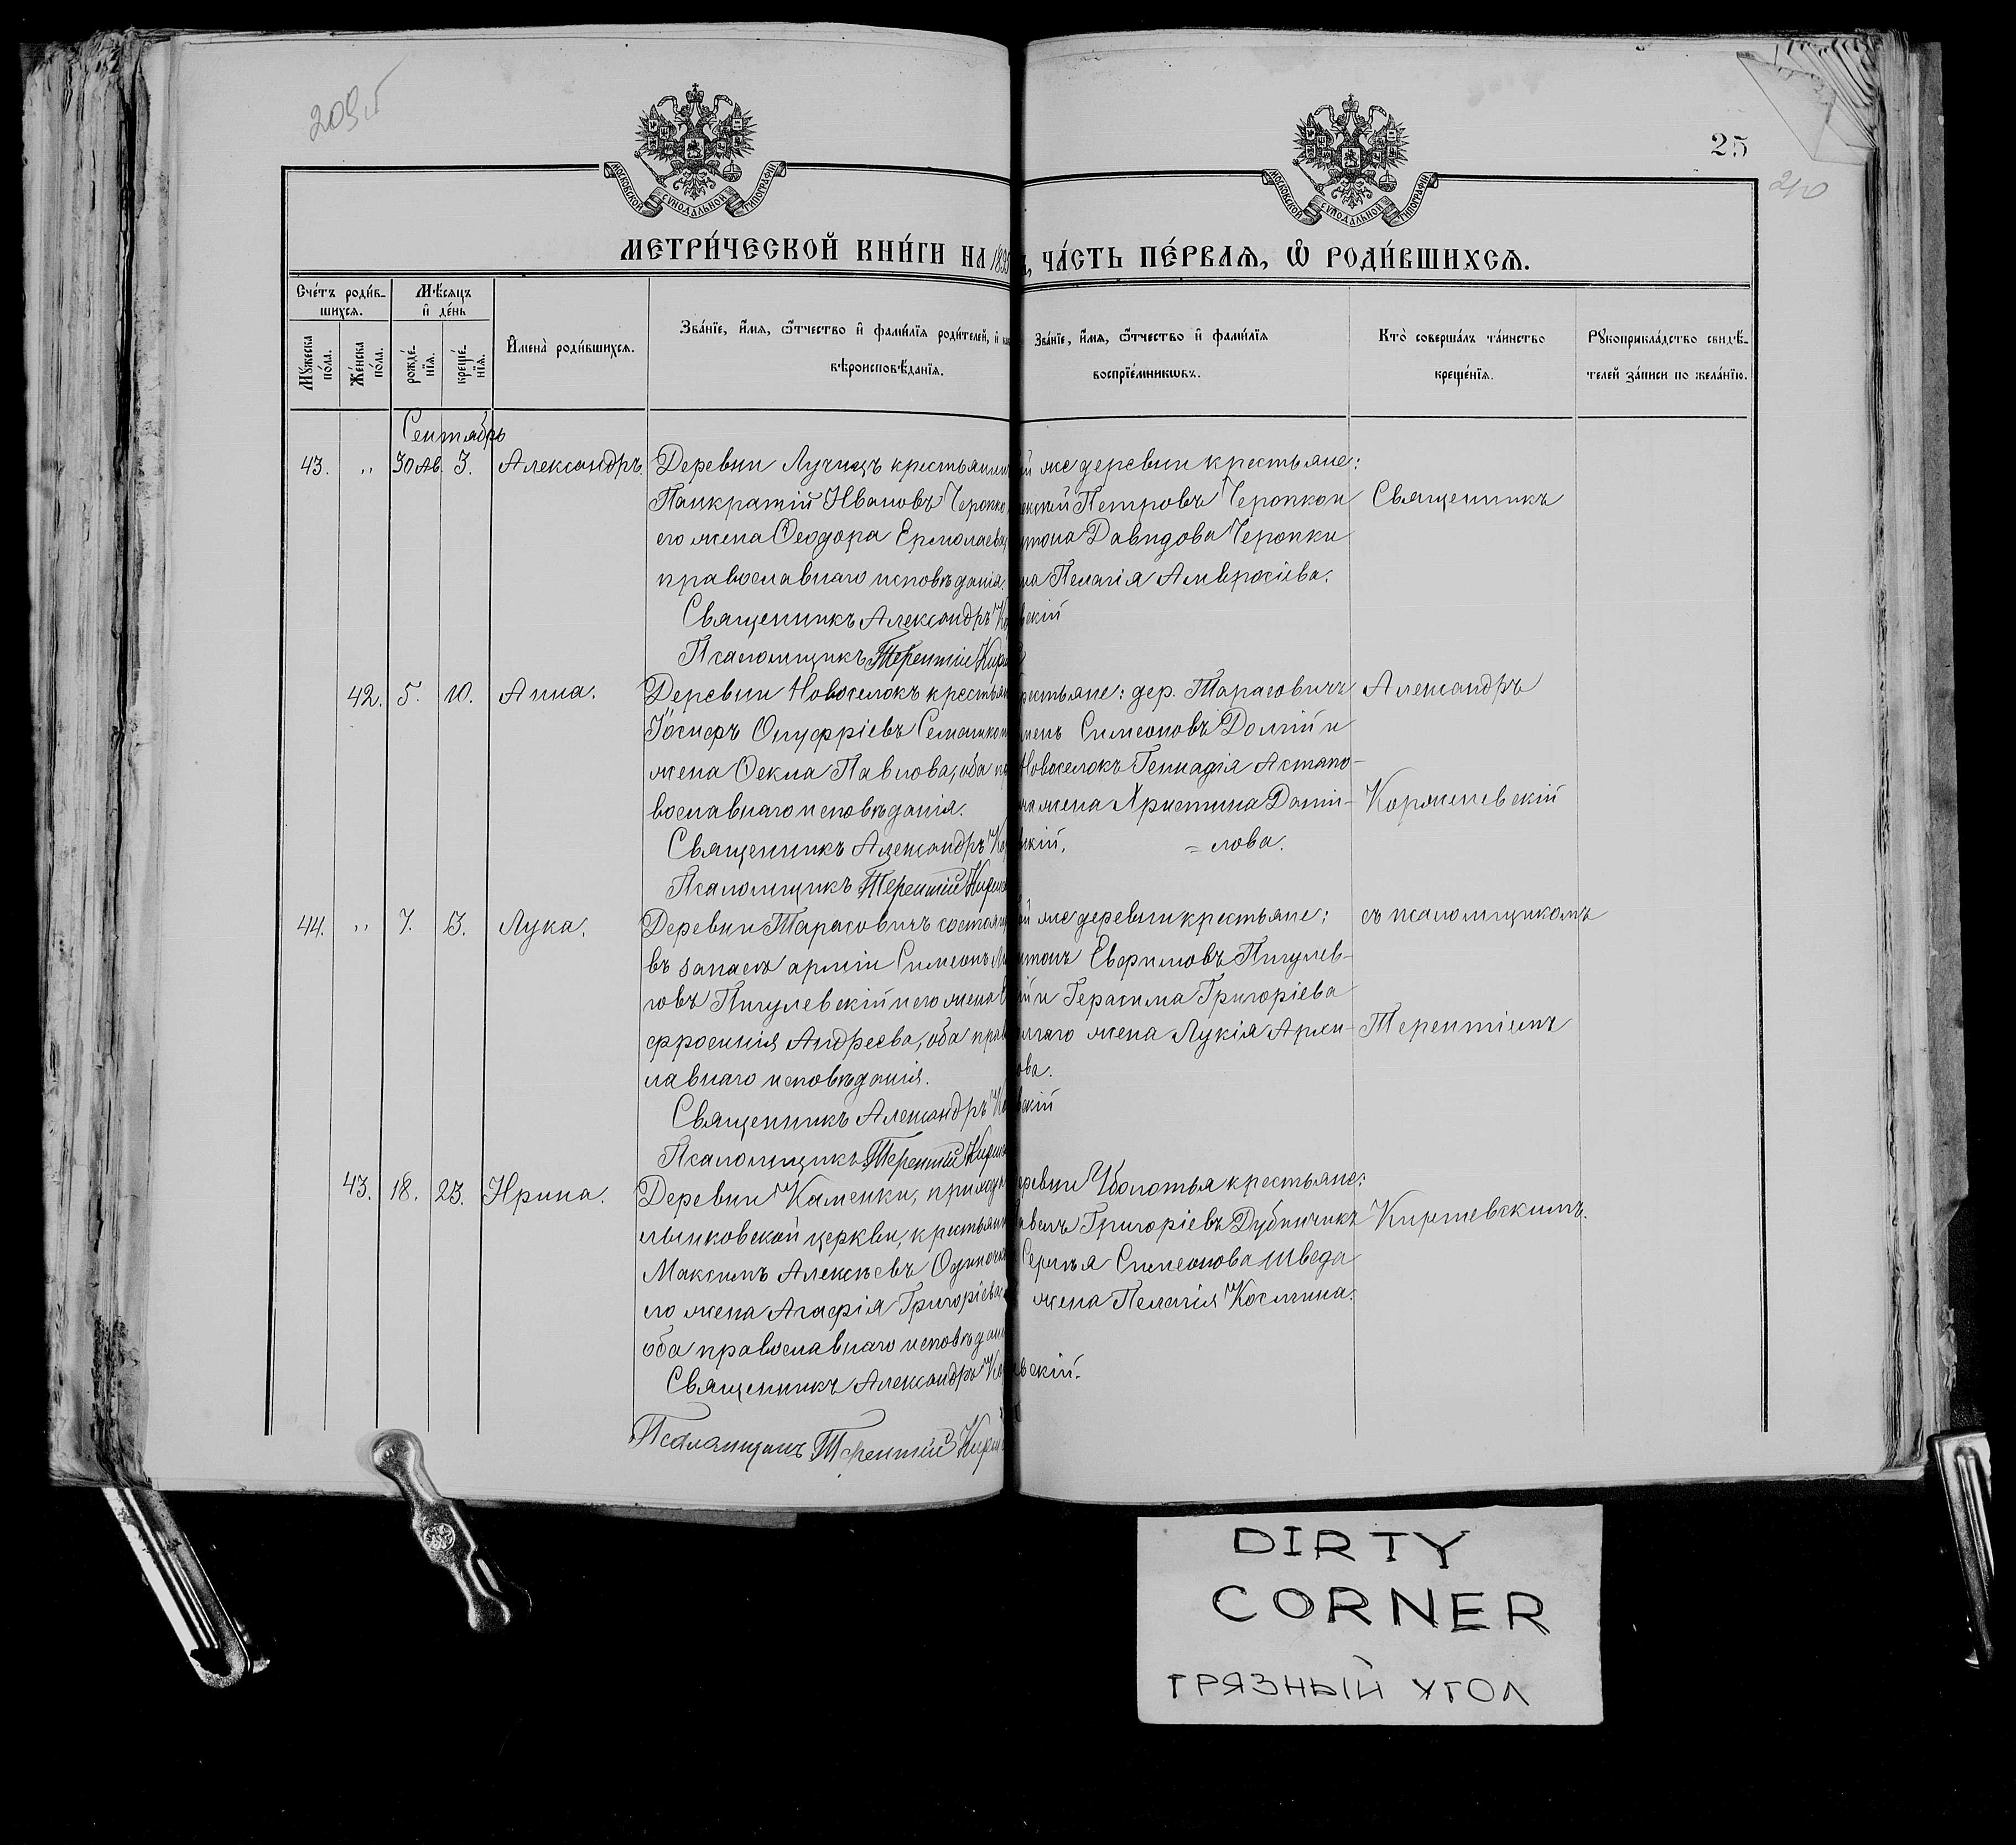 209об
25
210
МОСКОВСКОЙ СѴНОДАЛЬНОЙ ТИПОГРАФІИ
МОСКОВСКОЙ СѴНОДАЛЬНОЙ ТИПОГРАФІИ
МЕТРИ́ЧЕСКОЙ КНИ́ГИ НА 189
ЧА́СТЬ ПЕ́РВАѦ, Ѽ РОДИ́ВШИХСѦ.
Сче́тъ роди́в-
шихсѧ.
Мѣ́сѧцъ
и҆ де́нь
Му́жеска по́ла.
Же́нска по́ла.
рожде́-нїѧ.
креще́-нїѧ.
И҆мена̀ роди́вшихсѧ.
Зва́нїе, и҆́мѧ, ѻ҆́тчество и҆ фами́лїѧ роди́телей, и҆
вѣроисповѣ́данїѧ.
Зва́нїе, и҆́мѧ, ѻ҆́тчество и҆ фами́лїѧ
воспрїе́мникѡвъ.
Кто̀ соверша́лъ та́инство
креще́нїѧ.
Рукоприкла́дство свидѣ́-
телей за́писи по жела́нїю.
Сентябрь
43. " 30 Ав. 3. Александръ.
Деревни Лучицъ крестьянин
Панкратій Ивановъ Черопко
его жена Ѳеодора Ермолаева,
православнаго исповѣданія.
Священникъ Александръ Ко
Псаломщикъ Терентій Кирш
й же деревни крестьяне:
Петровъ Черопко и
Давидова Черопки
на Пелагія Амвросіева.
вскій
Священникъ
42. 5. 10. Анна.
Деревни Новоселокъ крестьян
Іосифъ Онуфріевъ Семашко и
жена Ѳекла Павлова, оба пр
вославнаго исповѣданія.
Священникъ Александръ Ко
Псаломщикъ Терентій Кирше
рестьяне: дер. Тарасовичъ
Симеоновъ Долгій и
Новоселокъ Геннадія Астапо-
жена Христина Даній-
вскій. = лова.
Александръ
Корженевскій
44. " 7. 13. Лука.
Деревни Тарасовичъ состоящ
въ запасѣ арміи Симеонъ
говъ Пигулевскій и его жена Е
фросинія Андреева, оба прав
лавнаго исповѣданія.
Священникъ Александръ Ко
Псаломщикъ Терентій Кирше
й же деревни крестьяне:
Евфимовъ Пигулев-
ій и Герасима Григоріева
лгаго жена Лукія Архи-
ова.
вскій
съ псаломщикомъ
Терентіемъ
43. 18. 23. Ирина.
Деревни Каменки, прихода
церкви, крестьянин
Максимъ Алексѣевъ Одиноч
его жена Агафія Григоріева
оба православнаго исповѣдан
Священникъ Александръ Ко
Псаломщикъ Терентій Кирш
еревни Уболотья крестьяне:
авелъ Григоріевъ Дубничикъ
Сергѣя Симеонова Шведа
жена Пелагія Космина.
вскій.
Киршевскимъ.
DIRTY
CORNER
ГРЯЗНЫЙ УГОЛ